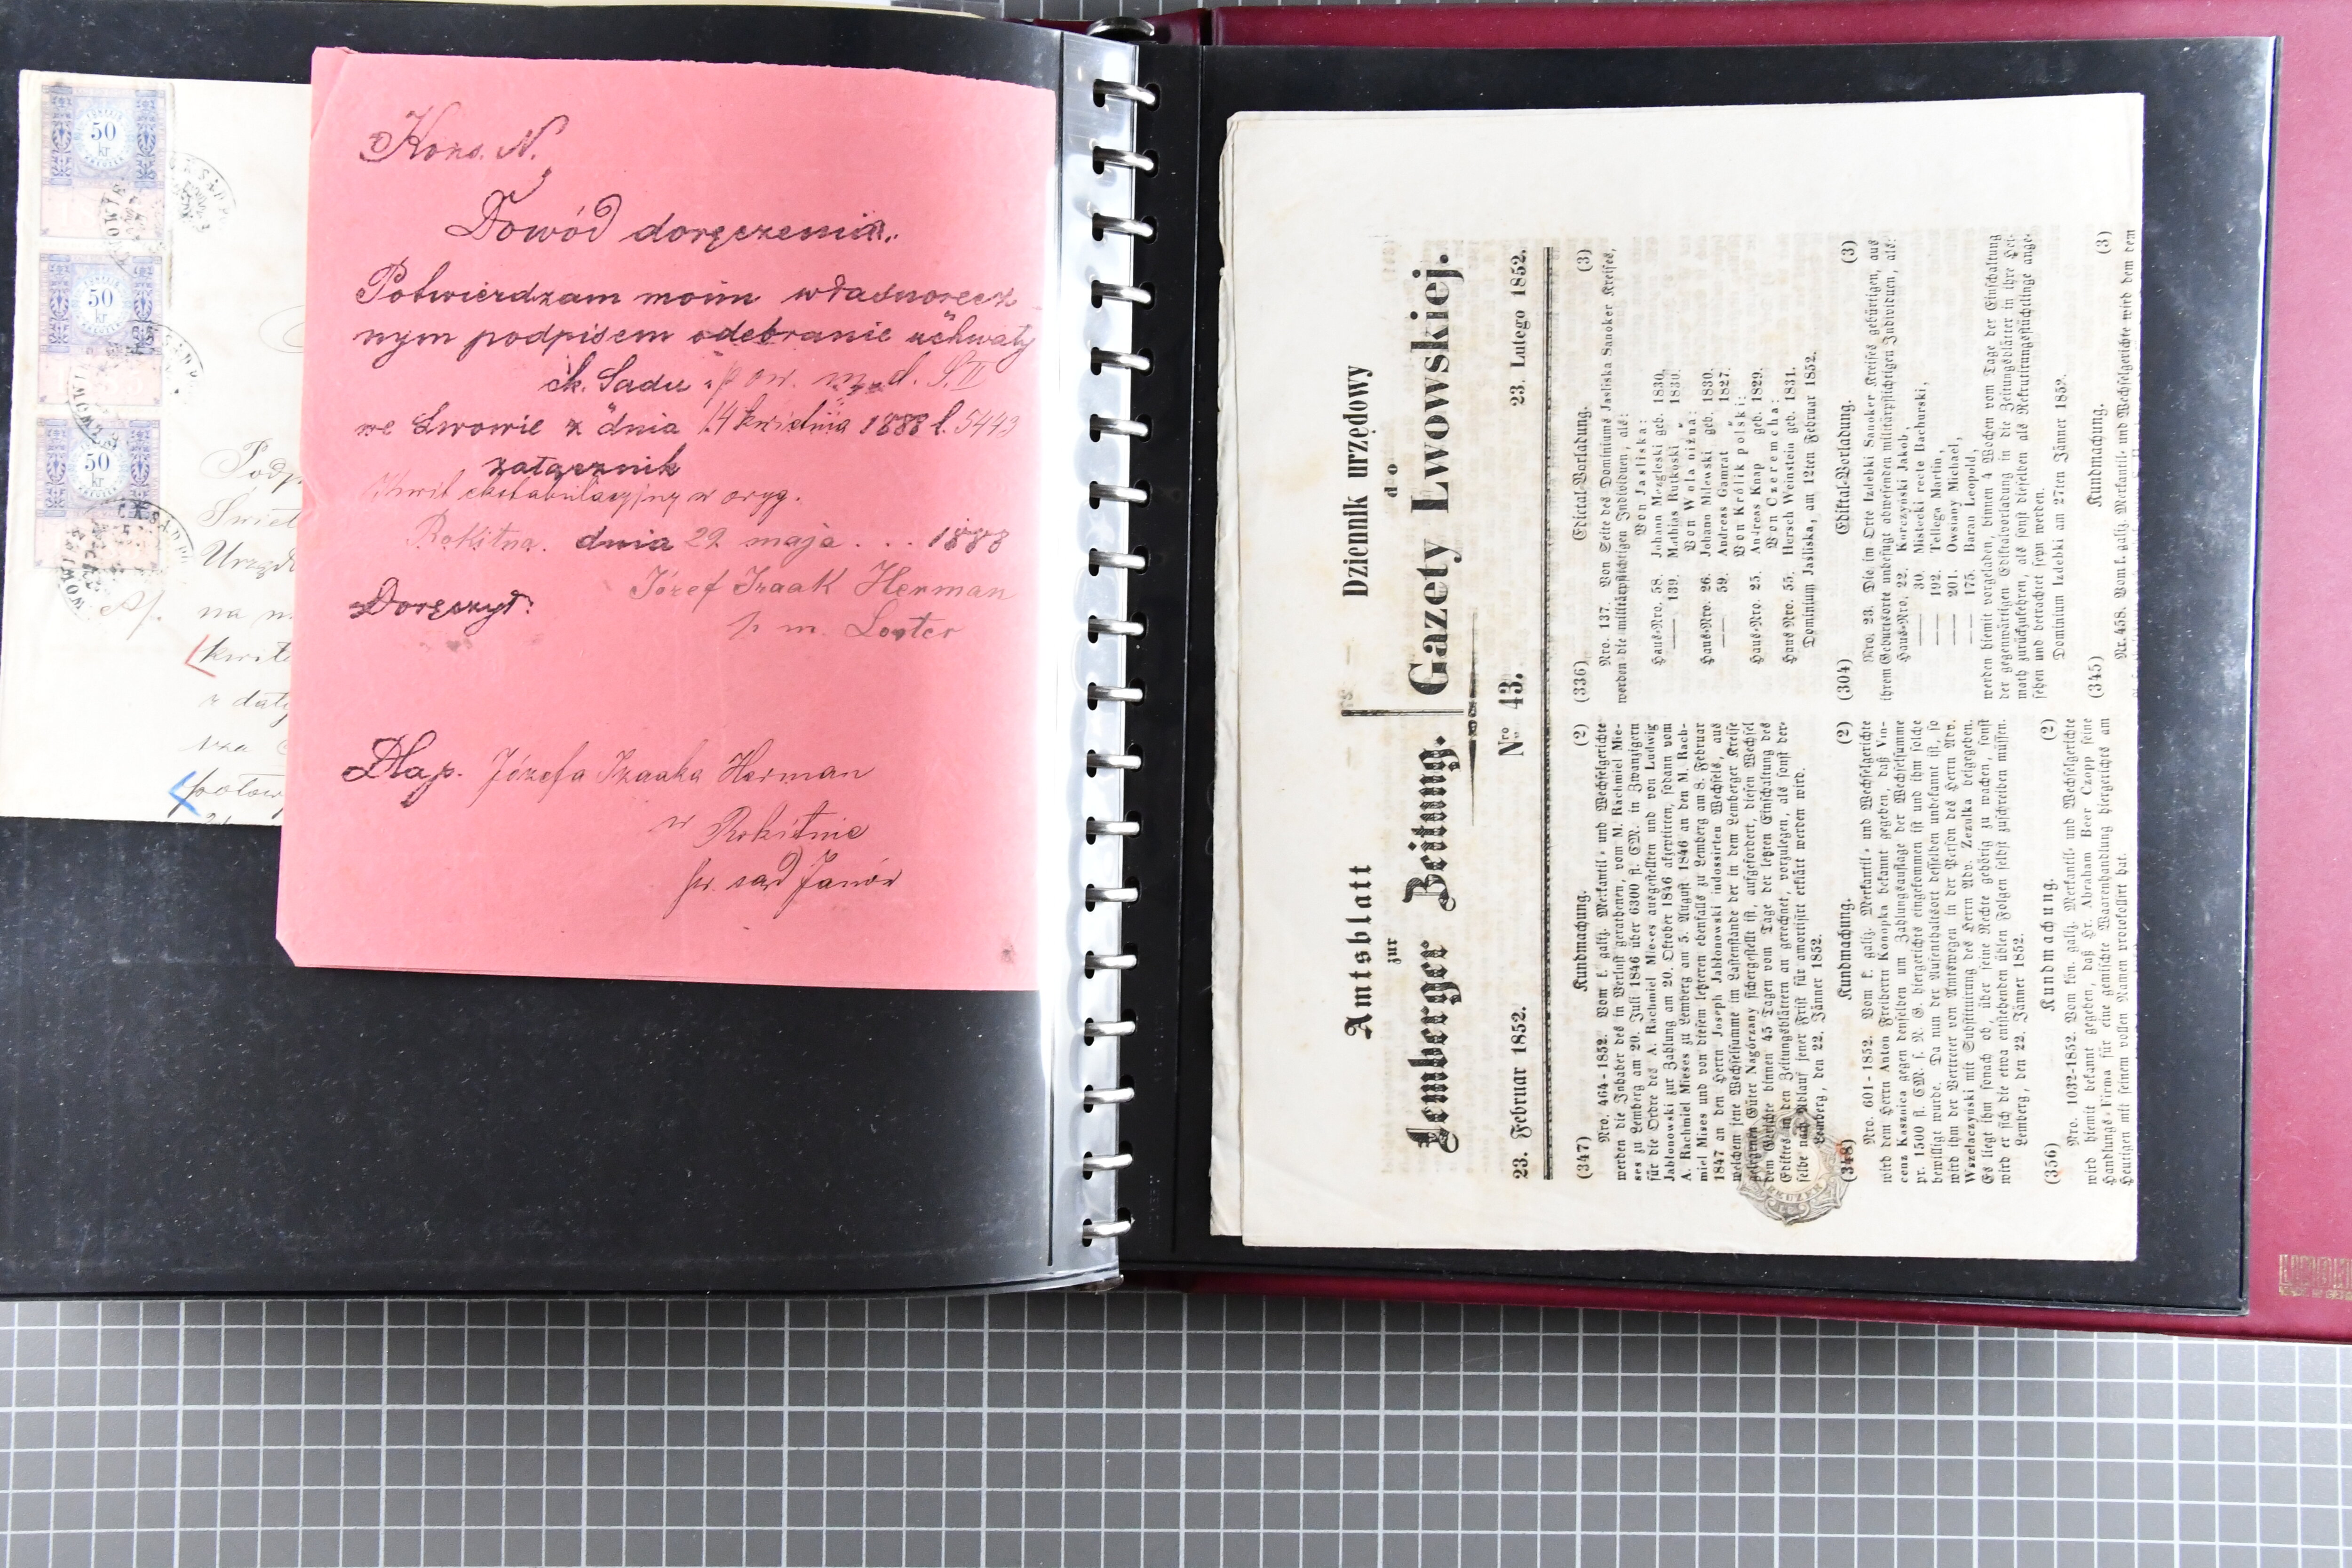 50
kr
50
kr
50
kr
Podp
Świet
Urzęd
na m
kwit
z daty
Kons. N.
Dowód doręczenia.
Potwierdzam moim własnoręcz
nym podpisem odebranie uchwały
ck. Sadu pow. m. d. S. II
we Lwowie z dnia 14 kwietnia 1888 l. 5443
załącznik
Kwit ekstabulacyjny w oryg.
Rokitna. dnia 29 maja . . . 1888
Józef Izaak Herman
Doręczył:
p m.
Dla p. Józefa Izaaka Herman
w Rokitnie
sąd Janów
Amtsblatt
zur
Lemberger Zeitung.
Dziennik urzędowy
do
Gazety Lwowskiej.
23. Februar 1852.
Nro. 43.
23. Lutego 1852.
(347) Kundmachung. (2)
Nro. 464-1852. Vom k. galiz. Merkantil- und Wechselgerichte
werden die Inhaber des in Verlust gerathenen, vom M. Rachmiel Mie-
ses zu Lemberg am 20. Juli 1846 über 6300 fl. CM. in Zwanzigern
für die Ordre des A. Rachmiel Mieses ausgestellten und von Ludwig
Jabłonowski zur Zahlung am 20. Oktober 1846 akzeptirten, sodann vom
A. Rachmiel Mieses zu Lemberg am 5. August 1846 an den M. Rach-
miel Mises und von diesem letzteren ebenfalls zu Lemberg am 8. Februar
1847 an den Herrn Joseph Jabłonowski indossirten Wechsels, aus
welchem jene Wechselsumme im Lastenstande der in dem Lemberger Kreise
gelegenen Güter Nagórzany sichergestellt ist, aufgefordert, diesen Wechsel
dem Gerichte binnen 45 Tagen vom Tage der letzten Einschaltung des
Ediktes in den Zeitungsblättern an gerechnet, vorzulegen, als sonst der-
selbe nach Ablauf jener Frist für amortisirt erklärt werden wird.
Lemberg, den 22. Jänner 1852.
(348) Kundmachung. (2)
Nro. 601-1852. Vom k. galiz. Merkantil- und Wechselgerichte
wird dem Herrn Anton Freiherrn Konopka bekannt gegeben, daß Vin-
cenz Kasznica gegen denselben um Zahlungsauflage der Wechselsumme
pr. 1500 fl. CM. s. N. G. hiergerichts eingekommen ist und ihm solche
bewilligt wurde. Da nun der Aufenthaltsort desselben unbekannt ist, so
wird ihm der Vertreter von Amtswegen in der Person des Herrn Adv.
Wszelaczyński mit Substituirung des Herrn Adv. Zezulka beigegeben.
Es liegt ihm sonach ob, über seine Rechte gehörig zu wachen, sonst
wird er sich die etwa entstehenden üblen Folgen selbst zuschreiben müssen.
Lemberg, den 22. Jänner 1852.
(356) Kundmachung. (2)
Nro. 1032-1852. Vom kön. galiz. Merkantil- und Wechselgerichte
wird hiemit bekannt gegeben, daß Hr. Abraham Beer Czopp seine
Handlungs-Firma für eine gemischte Waarenhandlung hiergerichts am
Heutigen mit seinem vollen Namen protokollirt hat.
(336) Edictal-Vorladung. (3)
Nro. 137. Von Seite des Dominiums Jasliska Sanoker Kreises,
werden die militärpflichtigen Individuen, als:
Von Jasliska:
Haus-Nro. 58. Johann Mezgleski geb. 1830,
—— 139. Mathias Rutkoski 1830.
Von Wola nizna:
Haus-Nro. 26. Johann Milewski geb. 1830.
—— 59. Andreas Gamrat 1827.
Von Królik polski:
Haus-Nro. 25. Andreas Knap geb. 1829.
Von Czeremcha:
Haus Nro. 55. Hersch Weinstein geb. 1831.
Dominium Jasliska, am 12ten Februar 1852.
(304) Ediktal-Vorladung. (3)
Nro. 23. Die im Orte Izdebki Sanoker Kreises gebürtigen, aus
ihrem Geburtsorte unbefugt abwesenden militärpflichtigen Individuen, als:
Haus-Nro. 22. Korczyński Jakob,
—— 30. Mislecki recte Bachurski,
—— 192. Tellega Martin,
—— 201. Owsiany Michael,
—— 175. Baran Leopold,
werden hiemit vorgeladen, binnen 4 Wochen vom Tage der Einschaltung
der gegenwärtigen Ediktalvorladung in die Zeitungsblätter in ihre Hei-
math zurückzukehren, als sonst dieselben als Rekrutirungsflüchtlinge ange-
sehen und betrachtet seyn werden.
Dominium Izdebki am 27ten Jänner 1852.
(345) Kundmachung. (3)
Nr. 458. Vom k. galiz. Merkantil- und Wechselgerichte wird dem